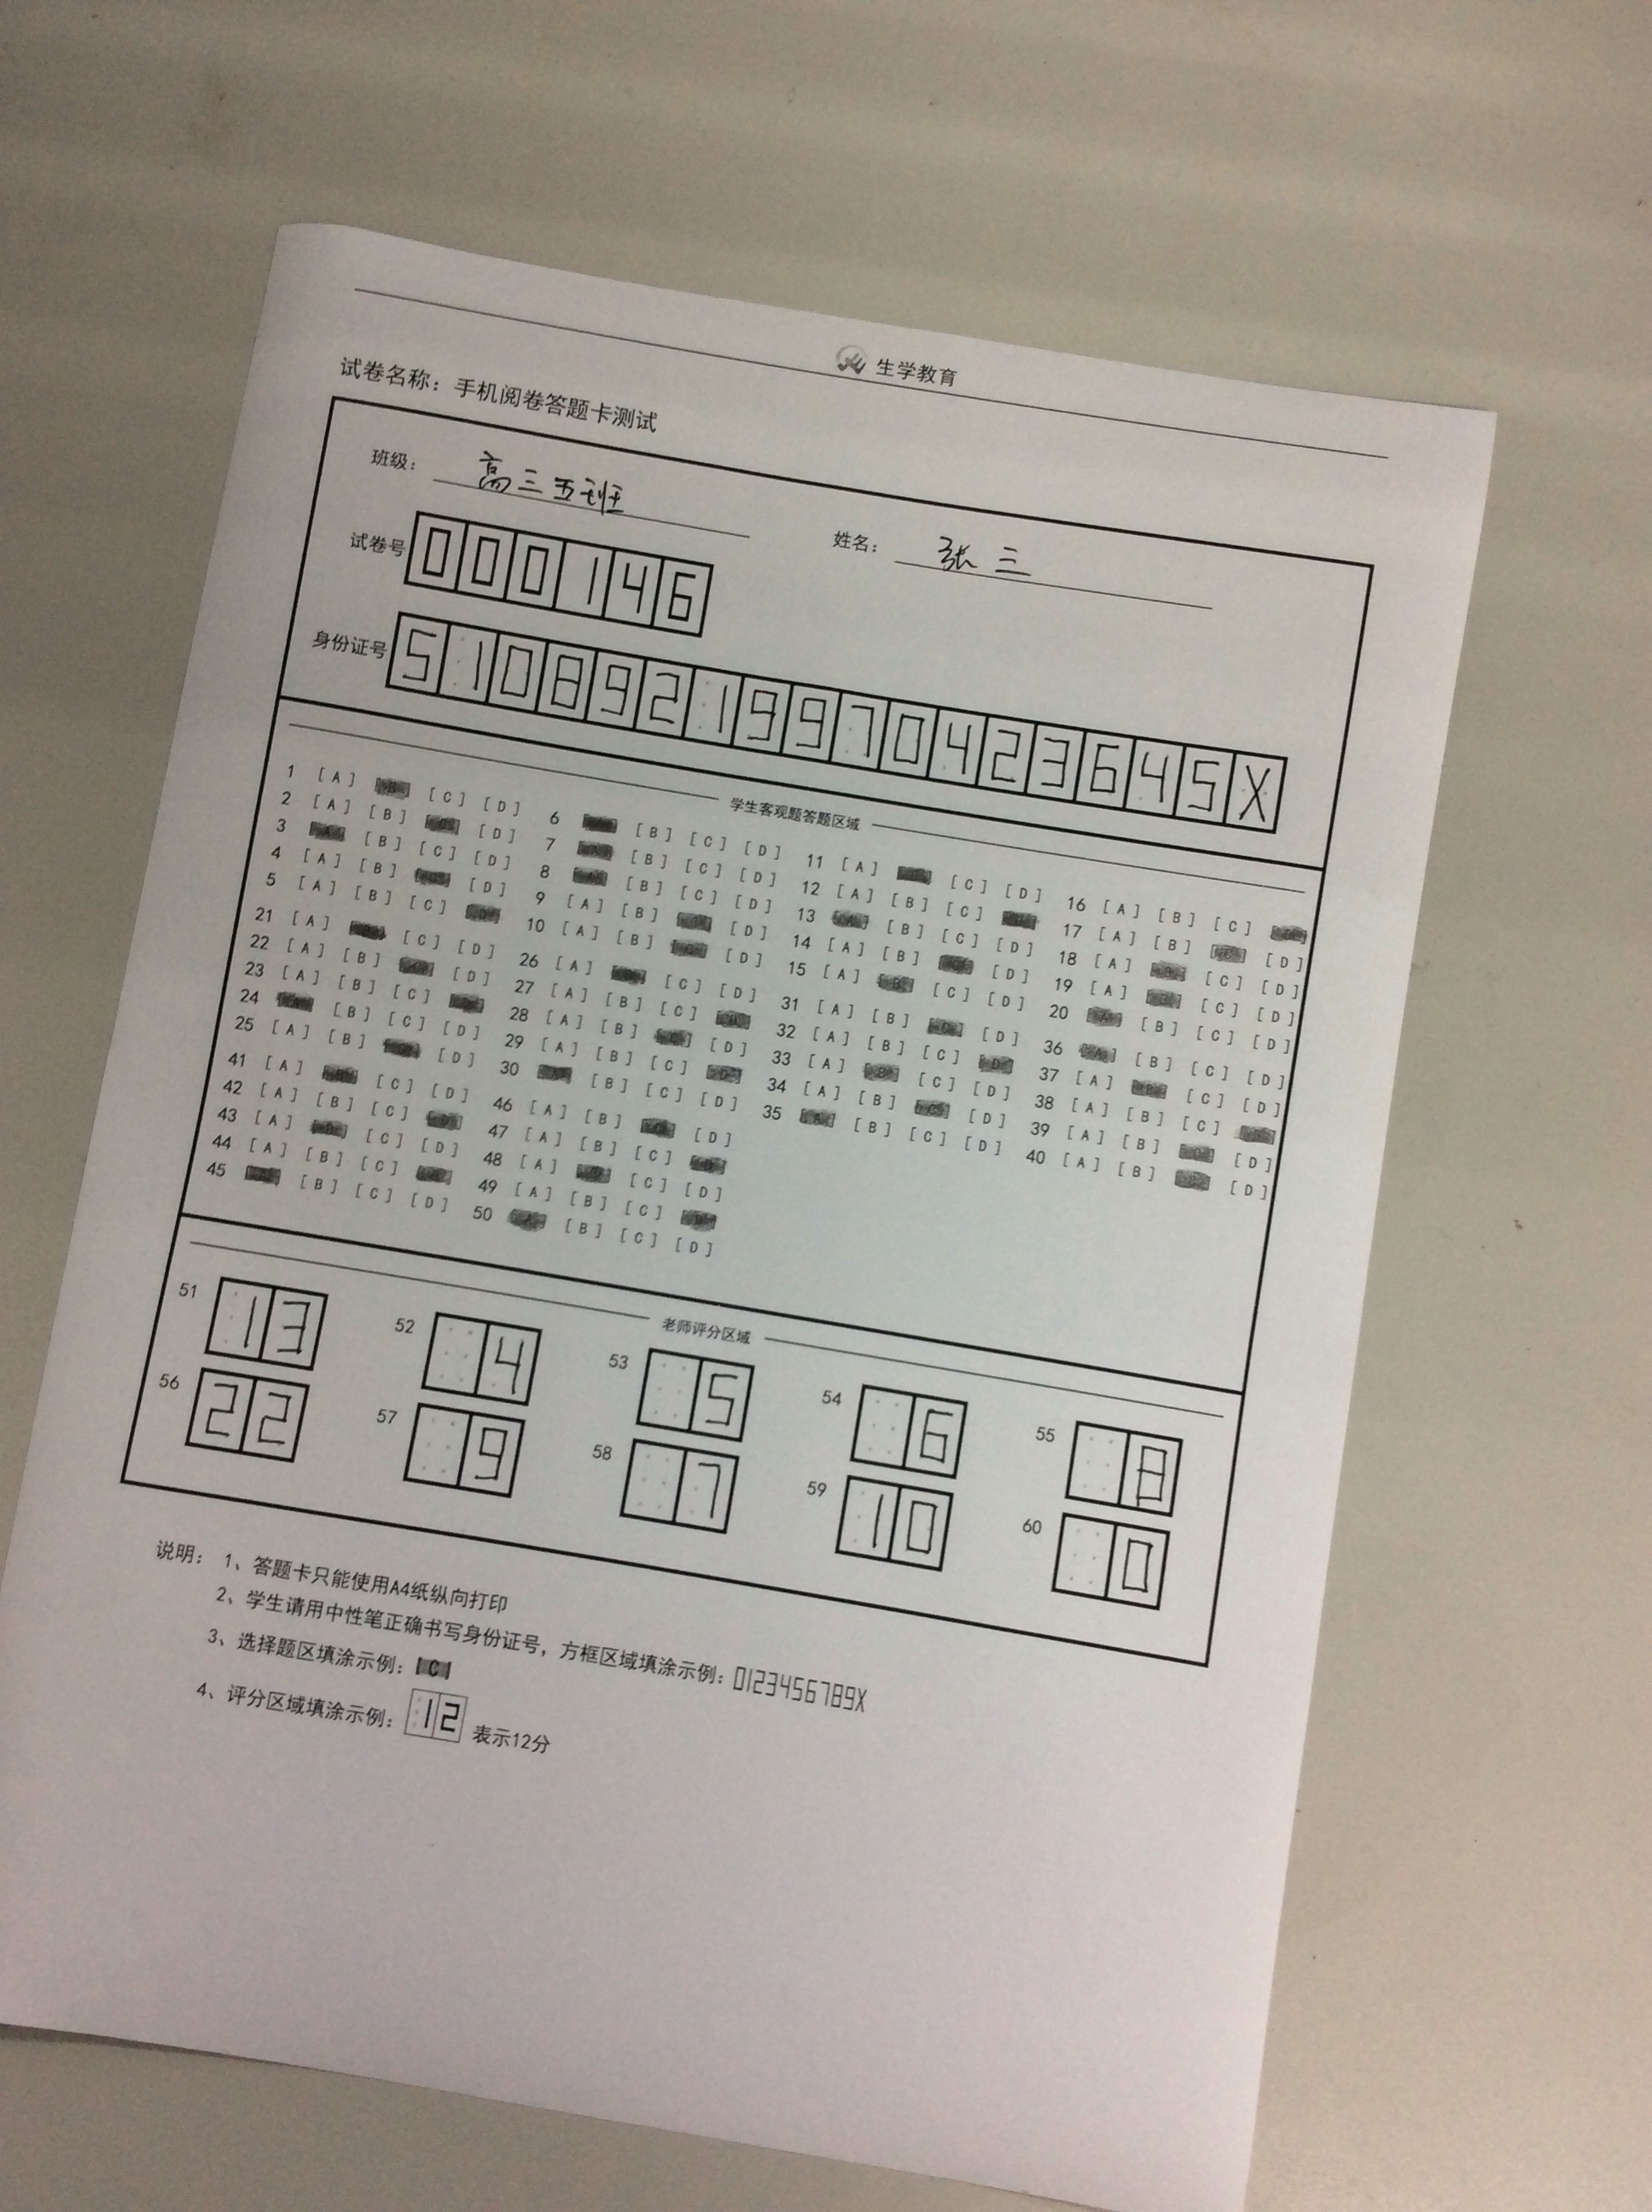 生学教育
试卷名称：手机阅卷答题卡测试
班级：高三五班
姓名：张三
试卷号 000146
身份证号 51089219970423645X
学生客观题答题区域
1 [A] [B] [C] [D] 6 [A] [B] [C] [D] 11 [A] [B] [C] [D] 16 [A] [B] [C] [D]
2 [A] [B] [C] [D] 7 [A] [B] [C] [D] 12 [A] [B] [C] [D] 17 [A] [B] [C] [D]
3 [A] [B] [C] [D] 8 [A] [B] [C] [D] 13 [A] [B] [C] [D] 18 [A] [B] [C] [D]
4 [A] [B] [C] [D] 9 [A] [B] [C] [D] 14 [A] [B] [C] [D] 19 [A] [B] [C] [D]
5 [A] [B] [C] [D] 10 [A] [B] [C] [D] 15 [A] [B] [C] [D] 20 [A] [B] [C] [D]
21 [A] [B] [C] [D] 26 [A] [B] [C] [D] 31 [A] [B] [C] [D] 36 [A] [B] [C] [D]
22 [A] [B] [C] [D] 27 [A] [B] [C] [D] 32 [A] [B] [C] [D] 37 [A] [B] [C] [D]
23 [A] [B] [C] [D] 28 [A] [B] [C] [D] 33 [A] [B] [C] [D] 38 [A] [B] [C] [D]
24 [A] [B] [C] [D] 29 [A] [B] [C] [D] 34 [A] [B] [C] [D] 39 [A] [B] [C] [D]
25 [A] [B] [C] [D] 30 [A] [B] [C] [D] 35 [A] [B] [C] [D] 40 [A] [B] [C] [D]
41 [A] [B] [C] [D] 46 [A] [B] [C] [D]
42 [A] [B] [C] [D] 47 [A] [B] [C] [D]
43 [A] [B] [C] [D] 48 [A] [B] [C] [D]
44 [A] [B] [C] [D] 49 [A] [B] [C] [D]
45 [A] [B] [C] [D] 50 [A] [B] [C] [D]
老师评分区域
51 13 52 4 53 5 54 6 55 8
56 22 57 9 58 7 59 10 60 0
说明：1、答题卡只能使用A4纸纵向打印
2、学生请用中性笔正确书写身份证号，方框区域填涂示例：0123456789X
3、选择题区填涂示例：[C]
4、评分区域填涂示例：12 表示12分